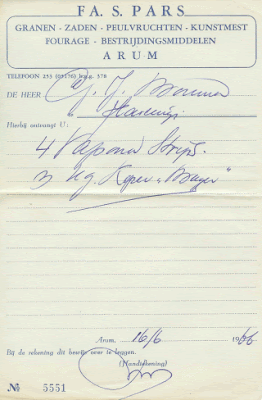 FA. S. PARS
GRANEN - ZADEN - PEULVRUCHTEN - KUNSTMEST
FOURAGE - BESTRIJDINGSMIDDELEN
ARUM
TELEFOON 253 (05176) b.g.g. 378
DE HEER
Hierbij ontvangt U:
4 Vapona Strips.
3 Kg. Koper „Bayer"
Arum, 16/6 1966
Bij de rekening dit bewijs over te leggen.
(Handtekening)
№ 5551